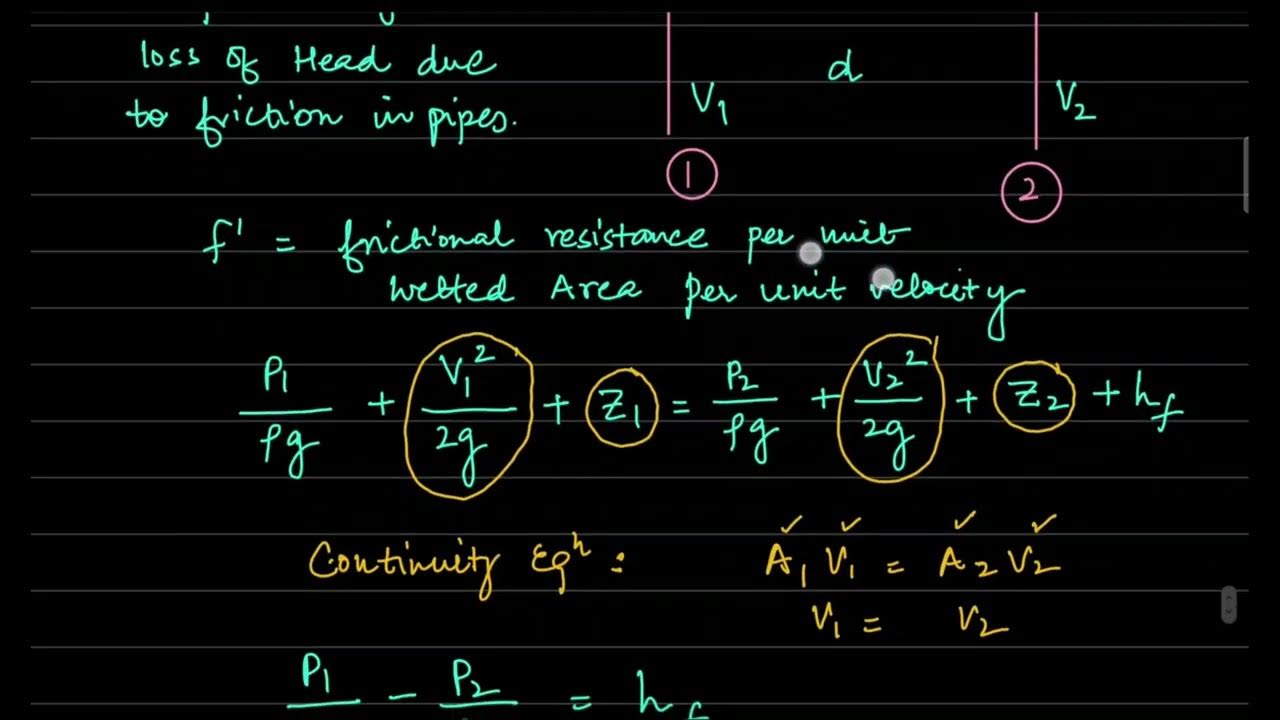 loss of Head due
to friction in pipes.
V₁ d V₂
① ②
f' = frictional resistance per unit
wetted Area per unit velocity
P₁/ρg + V₁²/2g + Z₁ = P₂/ρg + V₂²/2g + Z₂ + h_f
Continuity Eqⁿ : A₁ V₁ = A₂ V₂
V₁ = V₂
P₁ - P₂ = h_f